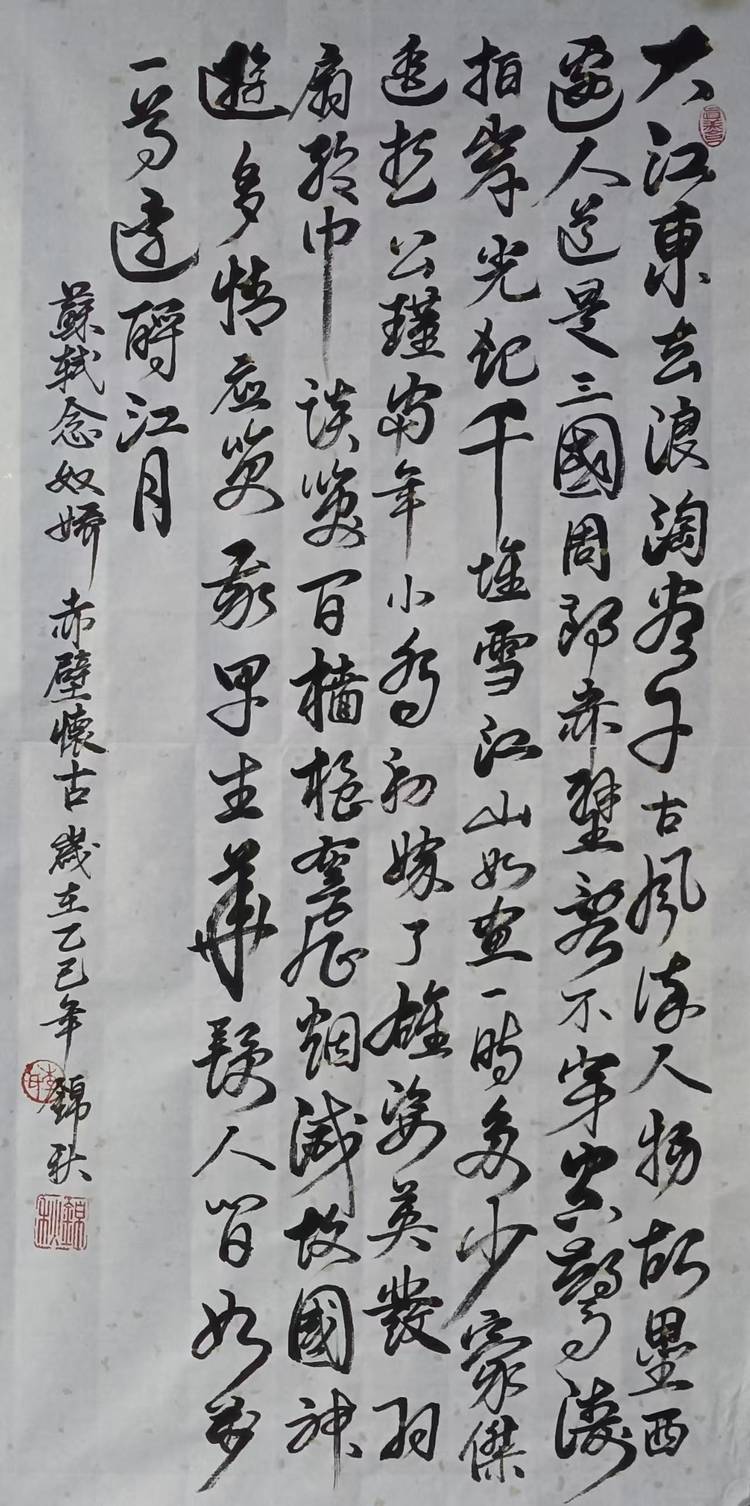 大江東去浪淘盡千古風流人物故壘西
邊人道是三國周郎赤壁亂石穿空驚濤
拍岸卷起千堆雪江山如畫一時多少豪傑
遙想公瑾當年小喬初嫁了雄姿英發羽
扇綸巾談笑間檣櫓灰飛烟滅故國神
遊多情應笑我早生華髮人間如夢
一尊還酹江月
蘇軾念奴嬌 赤壁懷古 歲在乙巳年 錦秋
錦秋